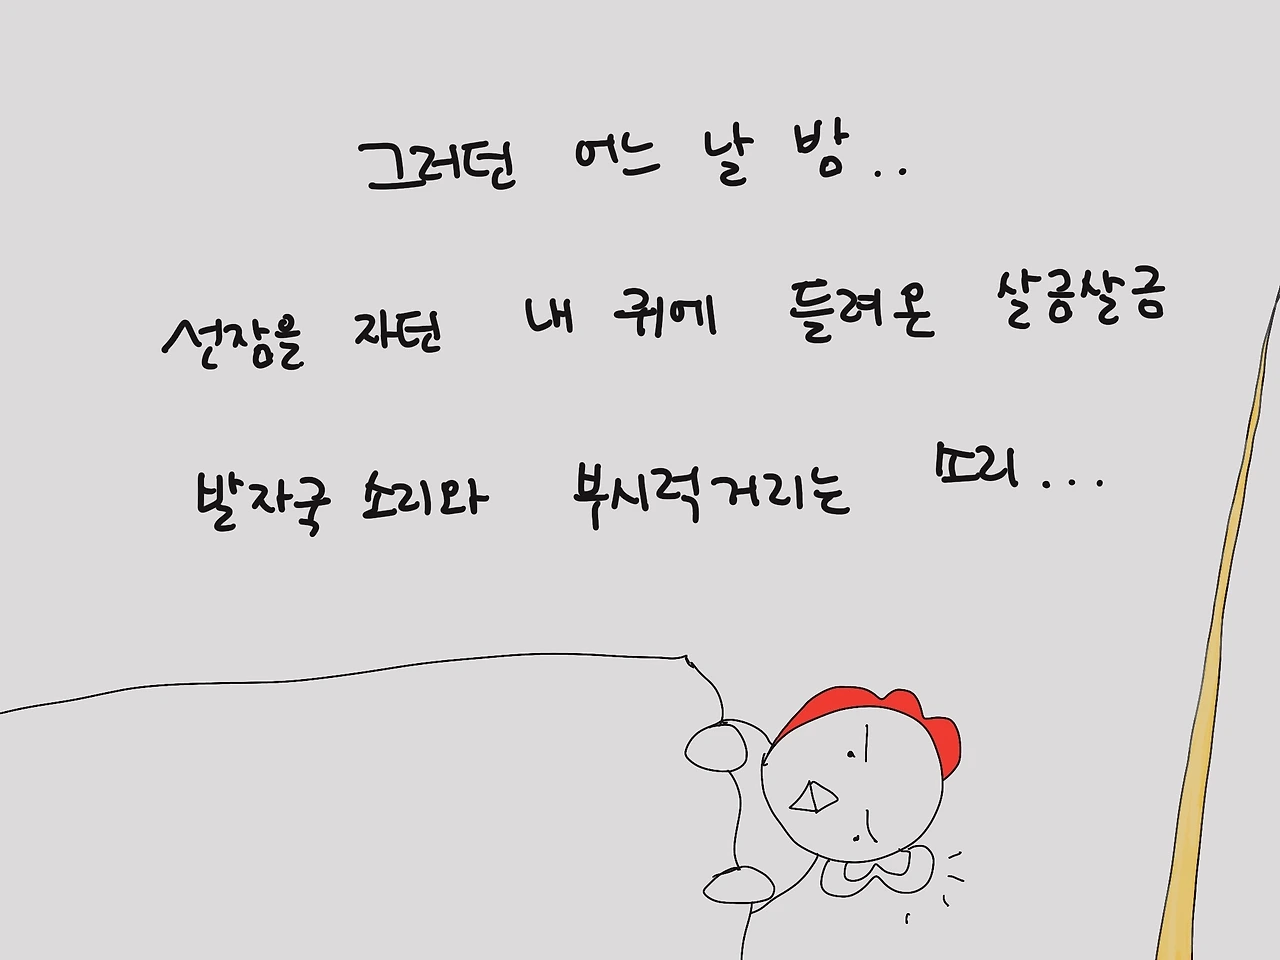 그러던 어느 날 밤..
선잠을 자던 내 귀에 들려온 살금살금
발자국 소리와 부시럭거리는 소리...